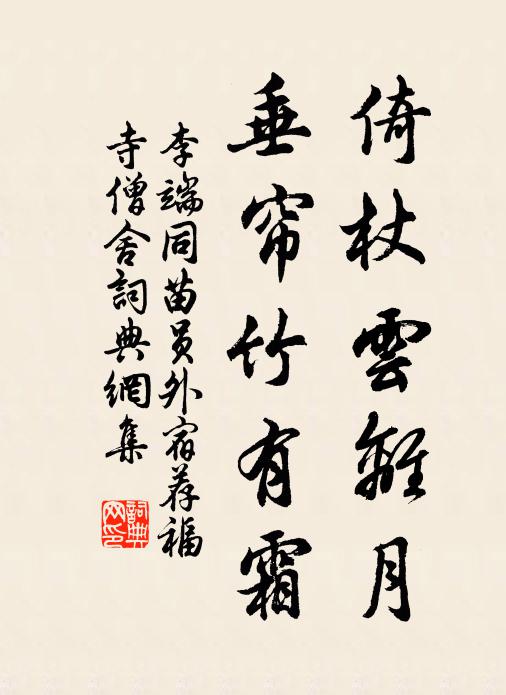 倚杖雲離月
垂帘竹有霜
李端同苗员外宿荐福
寺僧舍詞典網集
詞典网印